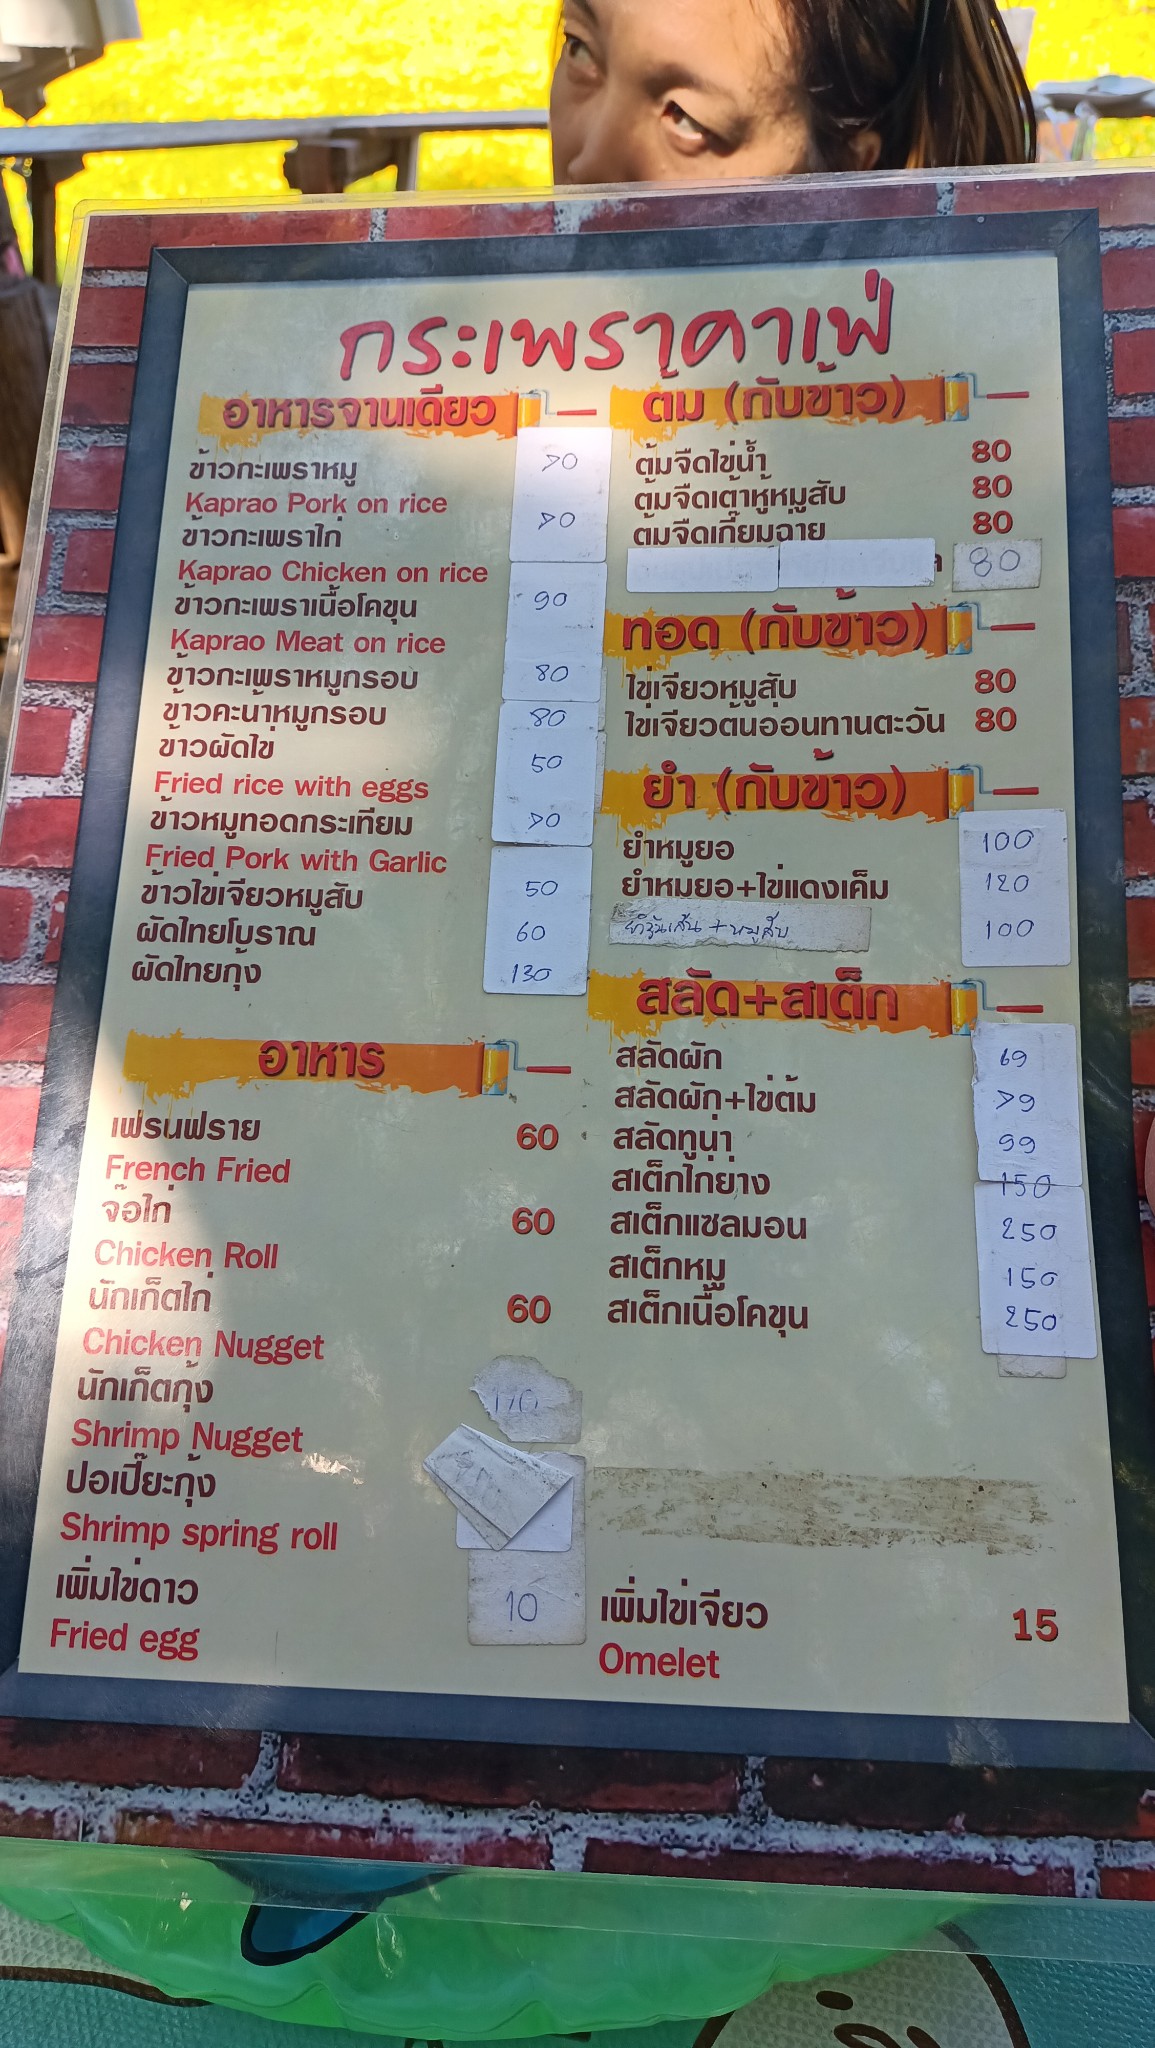 กระเพราคาเฟ่
อาหารจานเดียว
ข้าวกะเพราหมู 70
Kaprao Pork on rice
ข้าวกะเพราไก่ 70
Kaprao Chicken on rice
ข้าวกะเพราเนื้อโคขุน 90
Kaprao Meat on rice
ข้าวกะเพราหมูกรอบ 80
ข้าวคะน้าหมูกรอบ 80
ข้าวผัดไข่ 50
Fried rice with eggs
ข้าวหมูทอดกระเทียม 70
Fried Pork with Garlic
ข้าวไข่เจียวหมูสับ 50
ผัดไทยโบราณ 60
ผัดไทยกุ้ง 130
อาหาร
เฟรนฟราย 60
French Fried
จ๊อไก่ 60
Chicken Roll
นักเก็ตไก่ 60
Chicken Nugget
นักเก็ตกุ้ง
Shrimp Nugget
ปอเปี๊ยะกุ้ง
Shrimp spring roll
เพิ่มไข่ดาว 10
Fried egg
ต้ม (กับข้าว)
ต้มจืดไข่น้ำ 80
ต้มจืดเต้าหู้หมูสับ 80
ต้มจืดเกี๊ยมฉ่าย 80
80
ทอด (กับข้าว)
ไข่เจียวหมูสับ 80
ไข่เจียวต้นอ่อนทานตะวัน 80
ยำ (กับข้าว)
ยำหมูยอ 100
ยำหมูยอ+ไข่แดงเค็ม 120
ยำวุ้นเส้น+หมูสับ 100
สลัด+สเต็ก
สลัดผัก 69
สลัดผัก+ไข่ต้ม 79
สลัดทูน่า 99
สเต็กไก่ย่าง 150
สเต็กแซลมอน 250
สเต็กหมู 150
สเต็กเนื้อโคขุน 250
เพิ่มไข่เจียว 15
Omelet